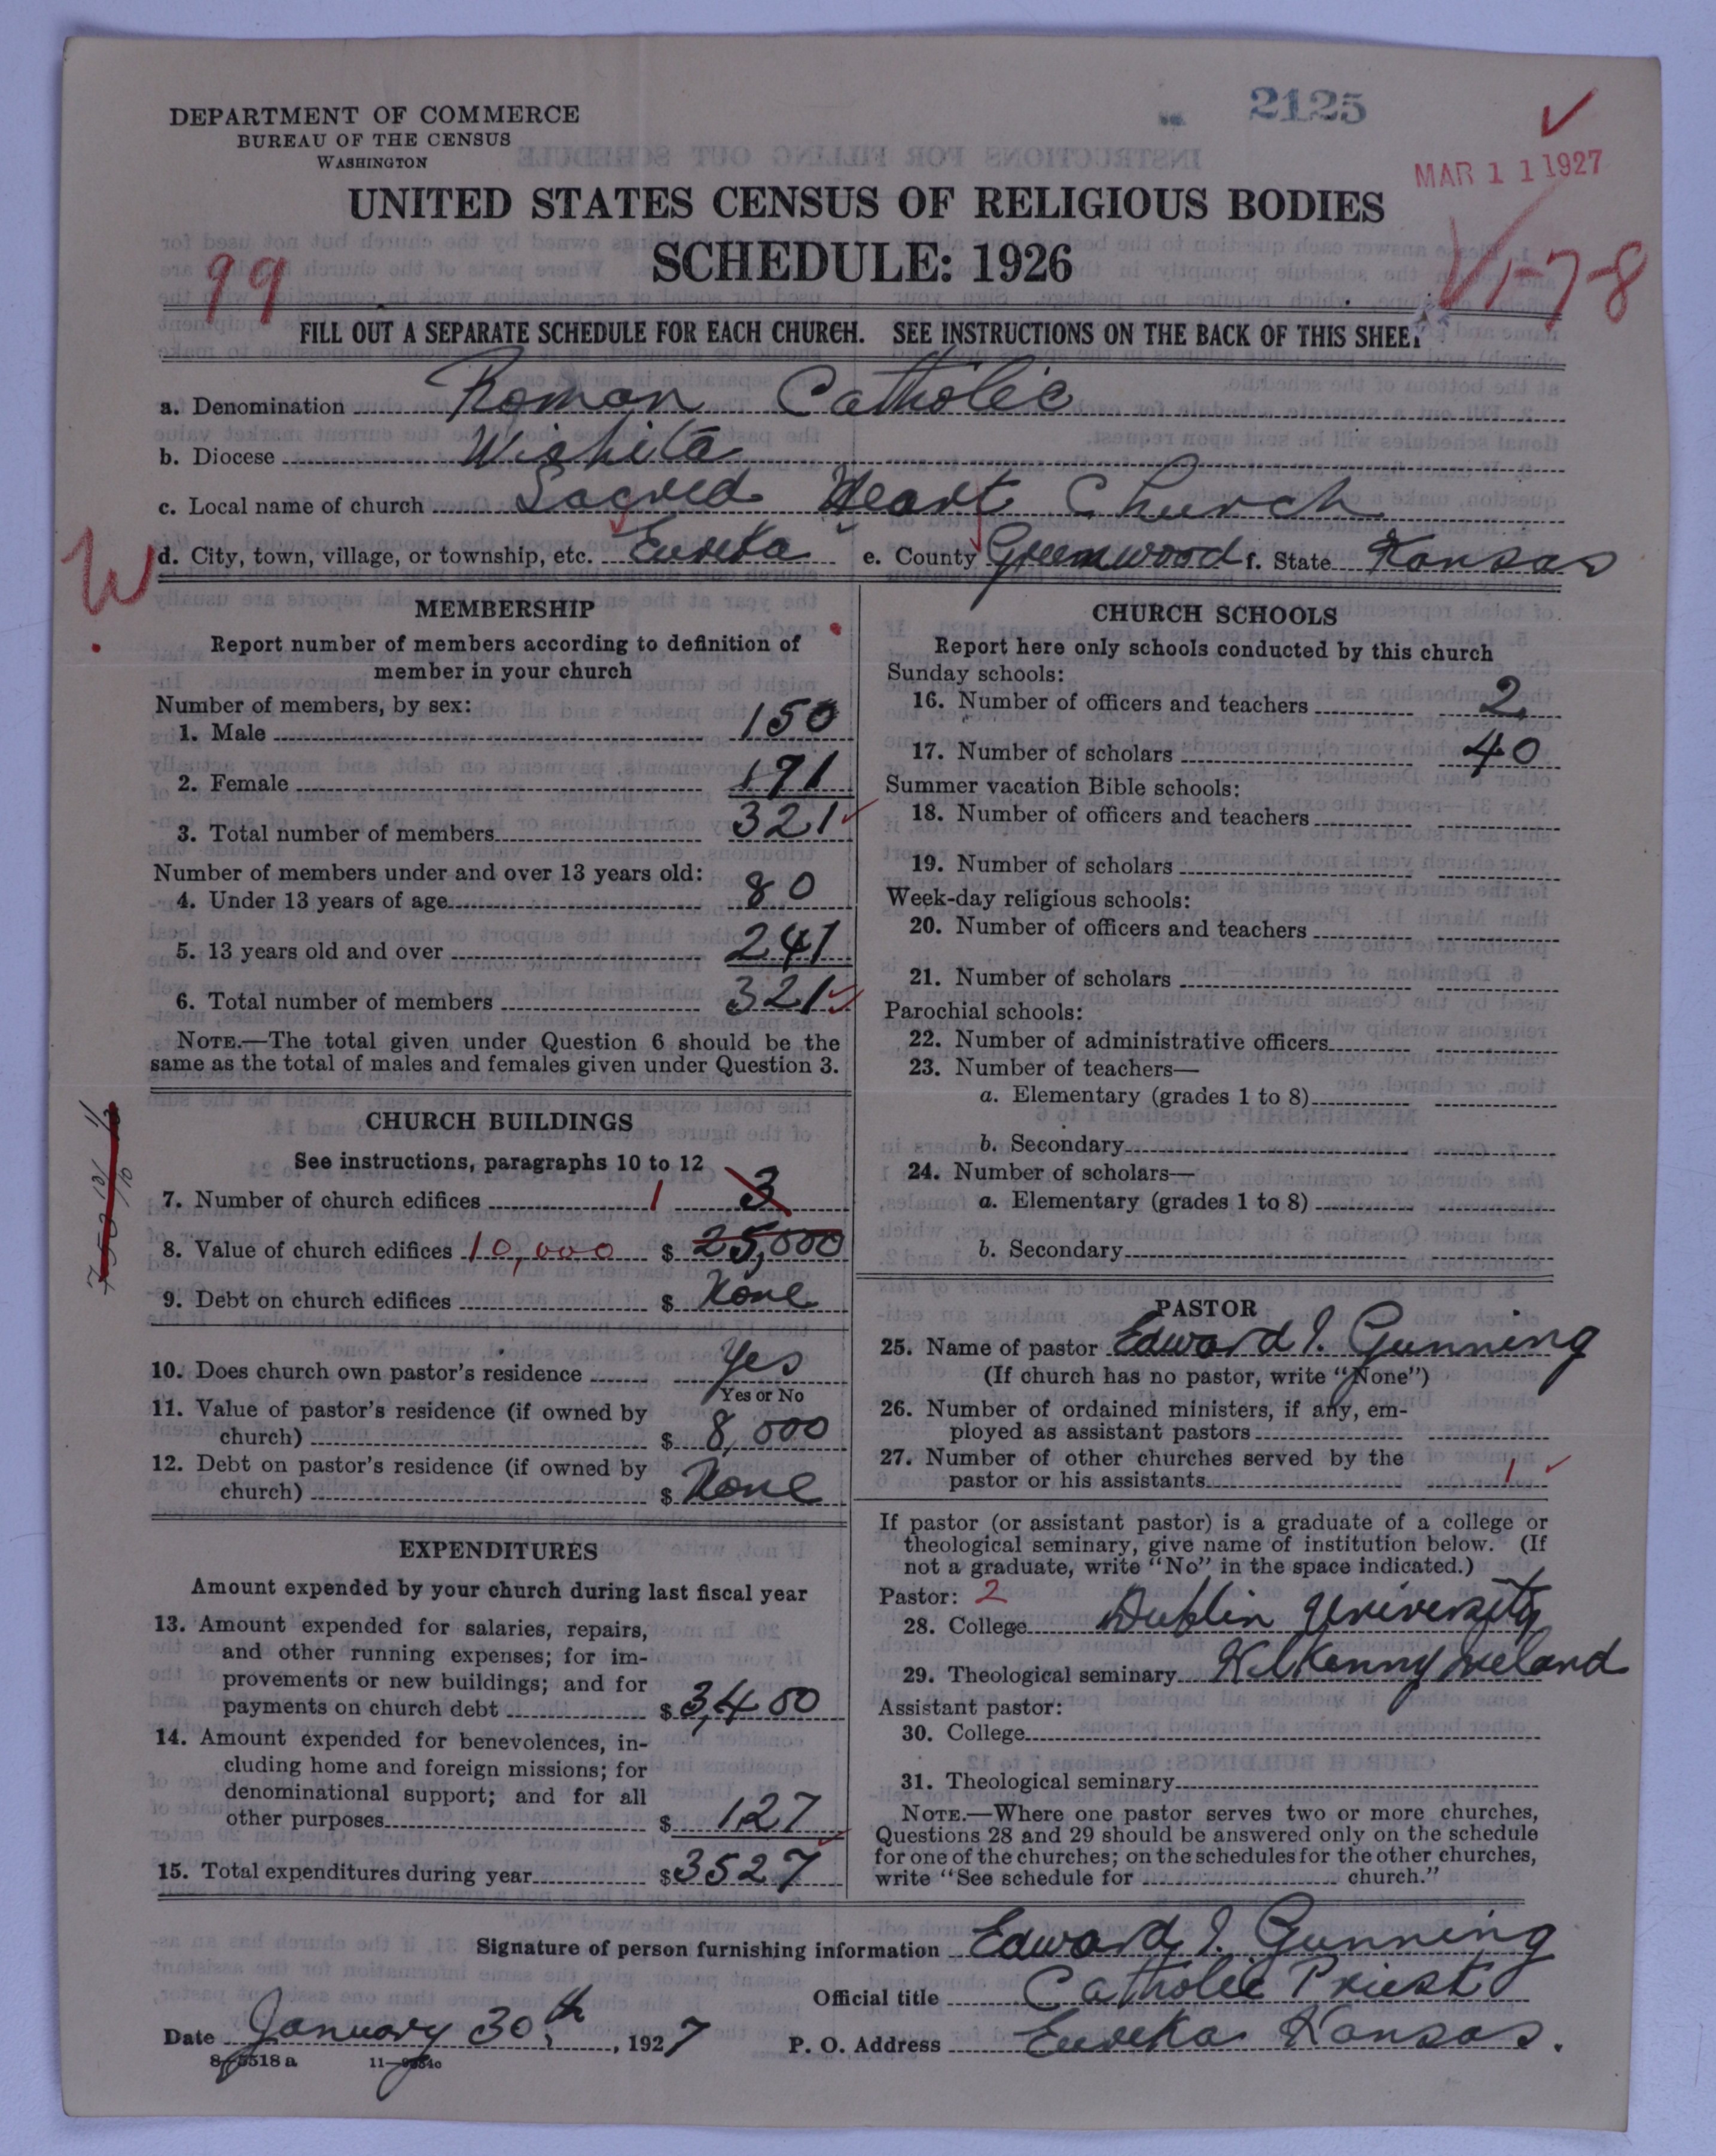 2125
DEPARTMENT OF COMMERCE
BUREAU OF THE CENSUS
WASHINGTON
MAR 11 1927
UNITED STATES CENSUS OF RELIGIOUS BODIES
SCHEDULE: 1926
99
1-7-8
FILL OUT A SEPARATE SCHEDULE FOR EACH CHURCH. SEE INSTRUCTIONS ON THE BACK OF THIS SHEET
a. Denomination Roman Catholic
b. Diocese Wichita
c. Local name of church Sacred Heart Church
W
d. City, town, village, or township, etc. Eureka e. County Greenwood f. State Kansas
MEMBERSHIP
Report number of members according to definition of
member in your church
Number of members, by sex:
1. Male 150
2. Female 171
3. Total number of members 321
Number of members under and over 13 years old:
4. Under 13 years of age 80
5. 13 years old and over 241
6. Total number of members 321
NOTE.—The total given under Question 6 should be the
same as the total of males and females given under Question 3.
CHURCH BUILDINGS
See instructions, paragraphs 10 to 12
7. Number of church edifices 1 3
8. Value of church edifices 10,000 $ 25,000
9. Debt on church edifices $ None
10. Does church own pastor's residence Yes
Yes or No
11. Value of pastor's residence (if owned by
church) $ 8,000
12. Debt on pastor's residence (if owned by
church) $ None
EXPENDITURES
Amount expended by your church during last fiscal year
13. Amount expended for salaries, repairs,
and other running expenses; for im-
provements or new buildings; and for
payments on church debt $ 3,400
14. Amount expended for benevolences, in-
cluding home and foreign missions; for
denominational support; and for all
other purposes $ 127
15. Total expenditures during year $ 3527
CHURCH SCHOOLS
Report here only schools conducted by this church
Sunday schools:
16. Number of officers and teachers 2
17. Number of scholars 40
Summer vacation Bible schools:
18. Number of officers and teachers
19. Number of scholars
Week-day religious schools:
20. Number of officers and teachers
21. Number of scholars
Parochial schools:
22. Number of administrative officers
23. Number of teachers—
a. Elementary (grades 1 to 8)
b. Secondary
24. Number of scholars—
a. Elementary (grades 1 to 8)
b. Secondary
PASTOR
25. Name of pastor Edward I. Gunning
(If church has no pastor, write "None")
26. Number of ordained ministers, if any, em-
ployed as assistant pastors
27. Number of other churches served by the
pastor or his assistants 1
If pastor (or assistant pastor) is a graduate of a college or
theological seminary, give name of institution below. (If
not a graduate, write "No" in the space indicated.)
Pastor: 2
28. College Dublin University
29. Theological seminary Kilkenny Ireland
Assistant pastor:
30. College
31. Theological seminary
NOTE.—Where one pastor serves two or more churches,
Questions 28 and 29 should be answered only on the schedule
for one of the churches; on the schedules for the other churches,
write "See schedule for church."
Signature of person furnishing information Edward I. Gunning
Official title Catholic Priest
Date January 30th, 1927 P. O. Address Eureka Kansas.